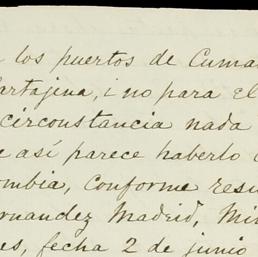 los puertos de Cuma
artajena, i no para el
circonstancia nada
así parece haberlo
ombia, conforme resu
rnandez Madrid, Min
es, fecha 2 de junio